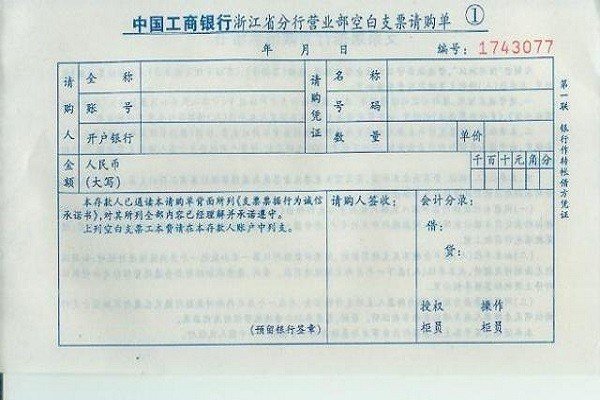 中国工商银行浙江省分行营业部空白支票请购单 ①
年 月 日 编号：1743077
请购人 全称 请购凭证 名称
账号 号码
开户银行 数量 单价
金额 人民币(大写) 千百十元角分
本存款人已通读本请购单背面所列《支票票据行为诚信
承诺书》，对其所列全部内容已经理解并承诺遵守。
上列空白支票工本费请在本存款人账户中列支。
(预留银行签章)
请购人签收：
会计分录：
借：
贷：
授权 操作
柜员 柜员
第一联 银行作转帐借方凭证